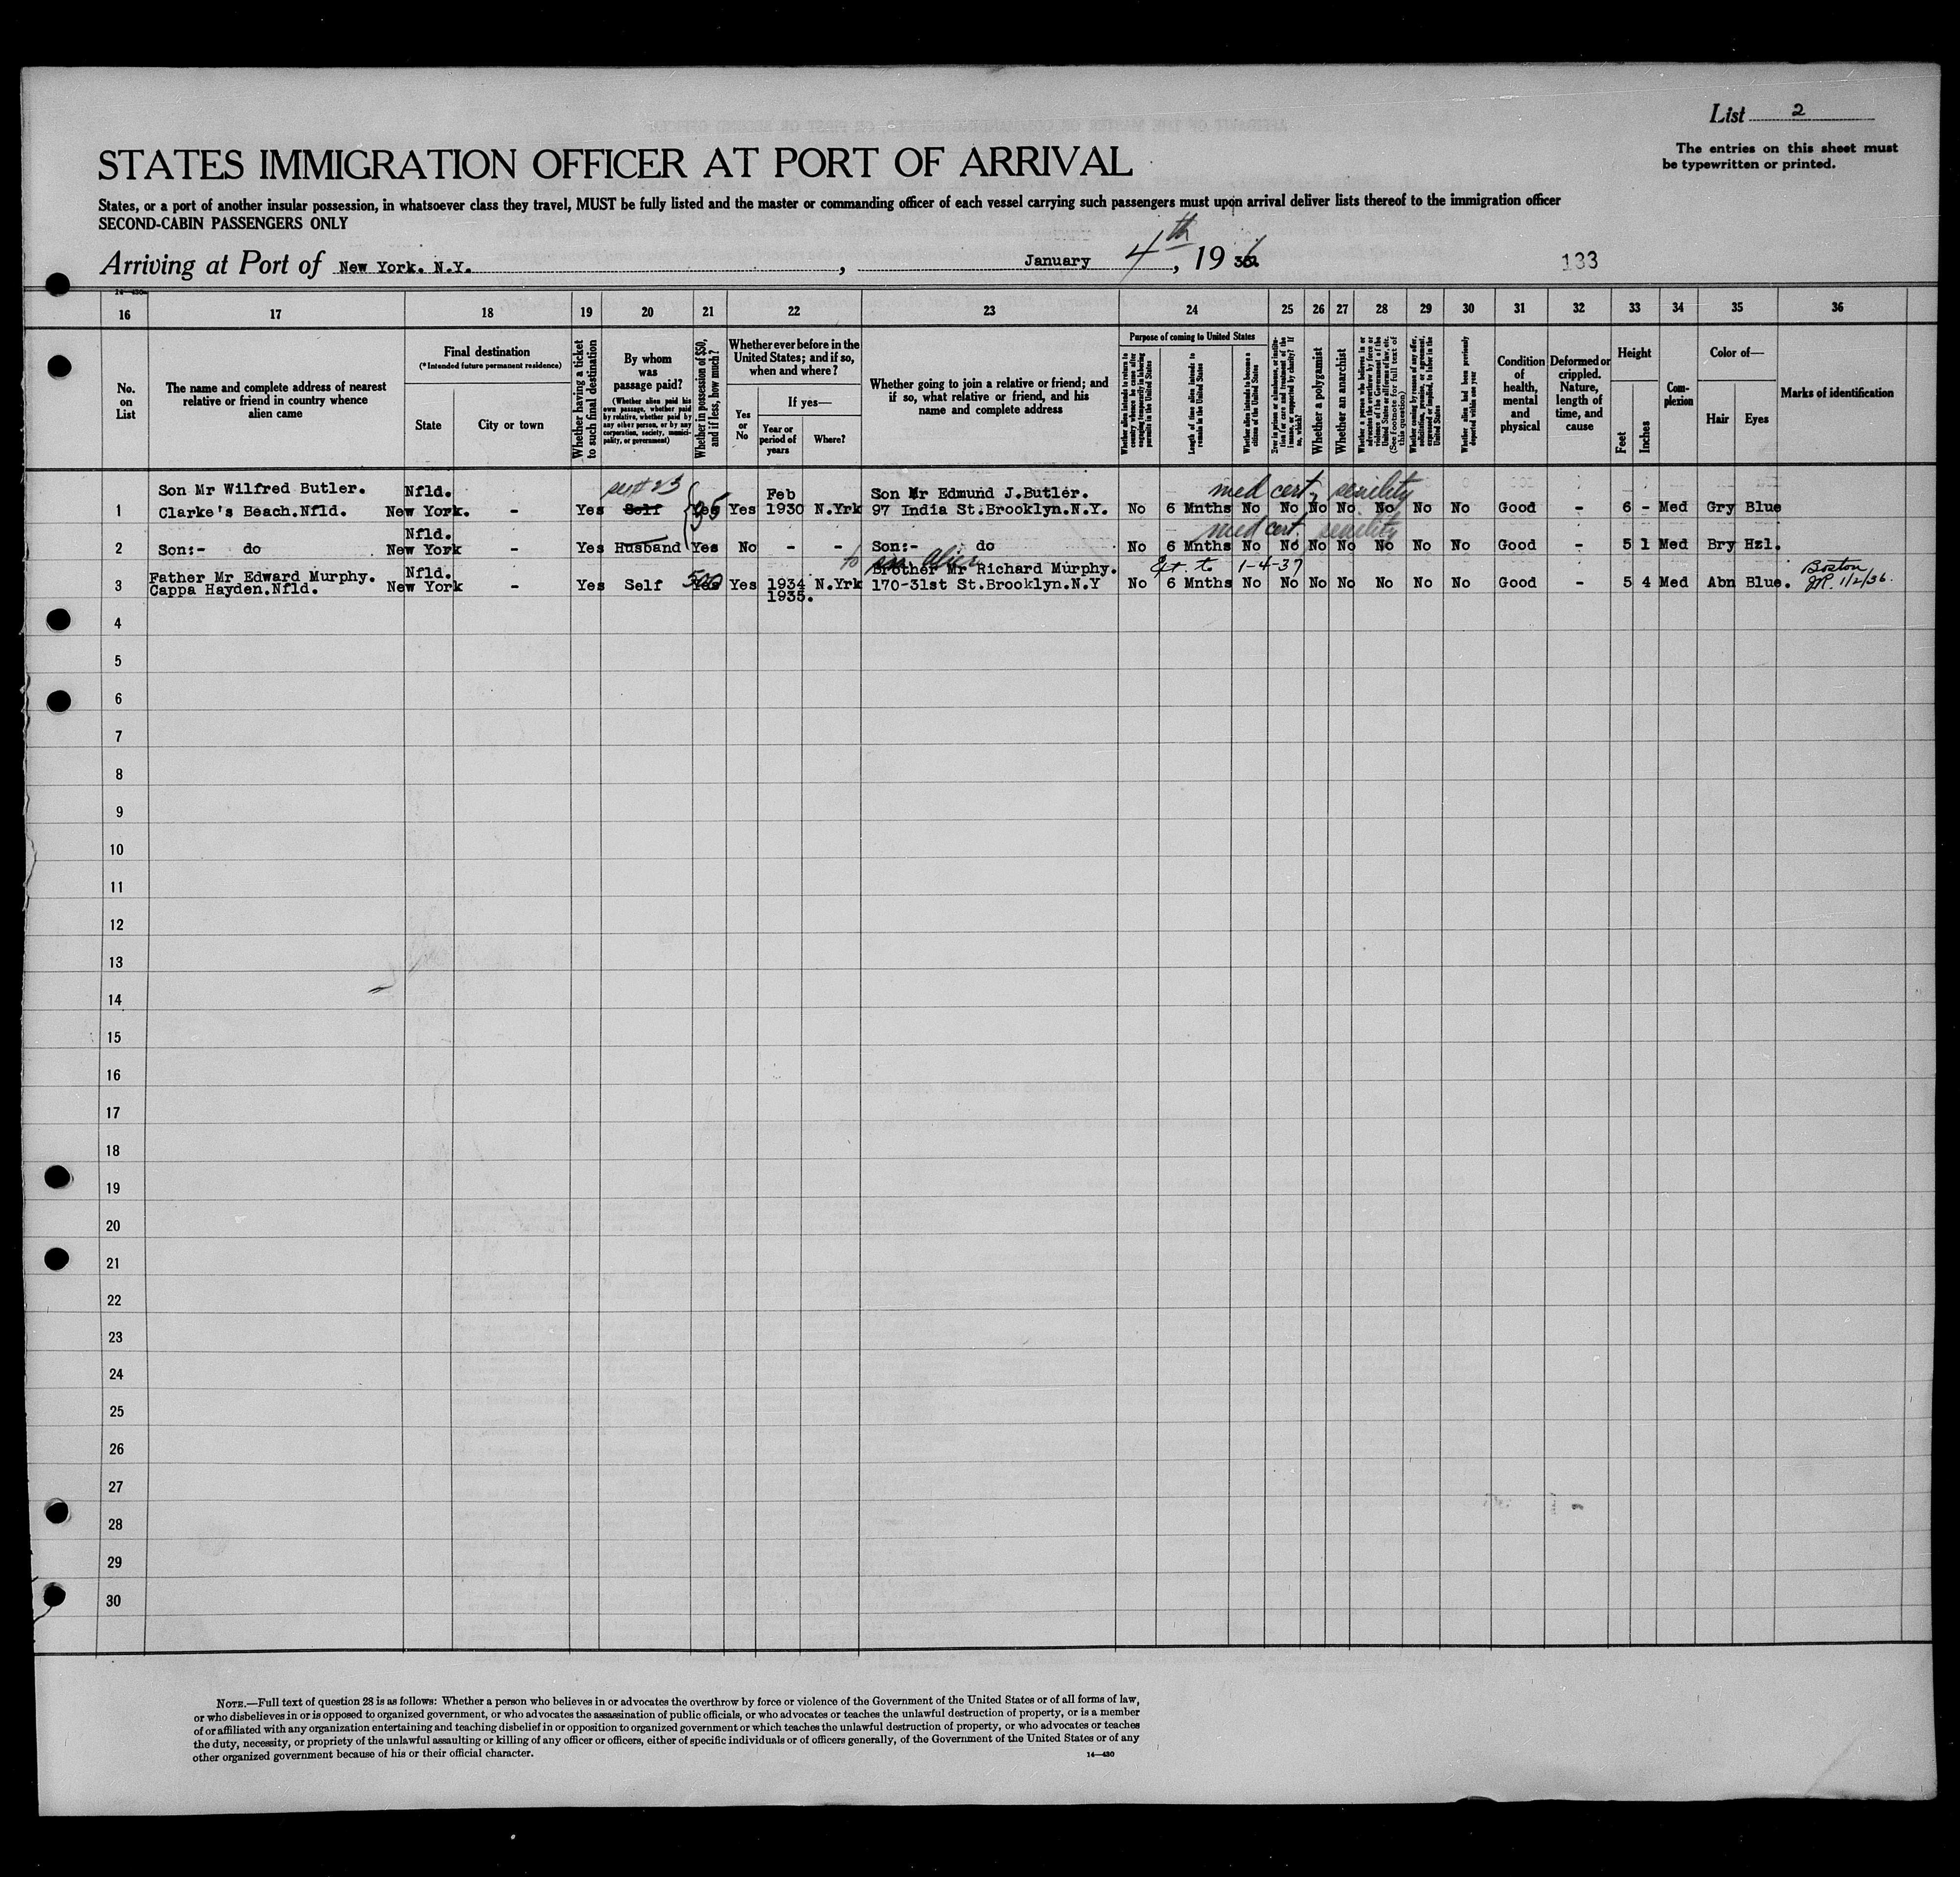 List 2
The entries on this sheet must
be typewritten or printed.
STATES IMMIGRATION OFFICER AT PORT OF ARRIVAL
States, or a port of another insular possession, in whatsoever class they travel, MUST be fully listed and the master or commanding officer of each vessel carrying such passengers must upon arrival deliver lists thereof to the immigration officer
SECOND-CABIN PASSENGERS ONLY
Arriving at Port of New York. N.Y. , January 4th , 19 36
133
14—430
16 17 18 19 20 21 22 23 24 25 26 27 28 29 30 31 32 33 34 35 36
No.
on
List
The name and complete address of nearest
relative or friend in country whence
alien came
Final destination
(*Intended future permanent residence)
State
City or town
Whether having a ticket
to such final destination
By whom
was
passage paid?
(Whether alien paid his
own passage, whether paid
by relative, whether paid by
any other person, or by any
corporation, society, munici-
pality, or government)
Whether in possession of $50,
and if less, how much?
Whether ever before in the
United States; and if so,
when and where?
Yes
or
No
If yes—
Year or
period of
years
Where?
Whether going to join a relative or friend; and
if so, what relative or friend, and his
name and complete address
Purpose of coming to United States
Whether alien intends to return to
country whence he came after
engaging temporarily in laboring
pursuits in the United States
Length of time alien intends to
remain in the United States
Whether alien intends to become a
citizen of the United States
Ever in prison or almshouse, or institu-
tion for care and treatment of the
insane, or supported by charity? If
so, which?
Whether a polygamist
Whether an anarchist
Whether a person who believes in or
advocates the overthrow by force or
violence of the Government of the
United States or all forms of law, etc.
(See footnote for full text of
this question)
Whether coming by reason of any offer,
solicitation, promise, or agreement,
expressed or implied, to labor in the
United States
Whether alien had been previously
deported within one year
Condition
of
health,
mental
and
physical
Deformed or
crippled.
Nature,
length of
time, and
cause
Height
Feet
Inches
Com-
plexion
Color of—
Hair
Eyes
Marks of identification
Son Mr Wilfred Butler. Nfld. Feb Son Mr Edmund J.Butler. med cert, senility
1 Clarke's Beach.Nfld. New York. - Yes Self Yes 35 Yes 1930 N.Yrk 97 India St.Brooklyn.N.Y. No 6 Mnths No No No No No No No Good - 6 - Med Gry Blue
Nfld. med cert. senility
2 Son:- do New York - Yes Husband Yes No - - Son:- do No 6 Mnths No No No No No No No Good - 5 1 Med Bry Hzl.
Father Mr Edward Murphy. Nfld. to Brother Mr Richard Murphy. 1-4-37 Boston
3 Cappa Hayden.Nfld. New York - Yes Self 500 Yes Yes 1934 N.Yrk 170-31st St.Brooklyn.N.Y No 6 Mnths No No No No No No No Good - 5 4 Med Abn Blue. 1/2/36.
1935.
4
5
6
7
8
9
10
11
12
13
14
15
16
17
18
19
20
21
22
23
24
25
26
27
28
29
30
NOTE.—Full text of question 28 is as follows: Whether a person who believes in or advocates the overthrow by force or violence of the Government of the United States or of all forms of law,
or who disbelieves in or is opposed to organized government, or who advocates the assassination of public officials, or who advocates or teaches the unlawful destruction of property, or is a member
of or affiliated with any organization entertaining and teaching disbelief in or opposition to organized government or which teaches the unlawful destruction of property, or who advocates or teaches
the duty, necessity, or propriety of the unlawful assaulting or killing of any officer or officers, either of specific individuals or of officers generally, of the Government of the United States or of any
other organized government because of his or their official character.
14—430